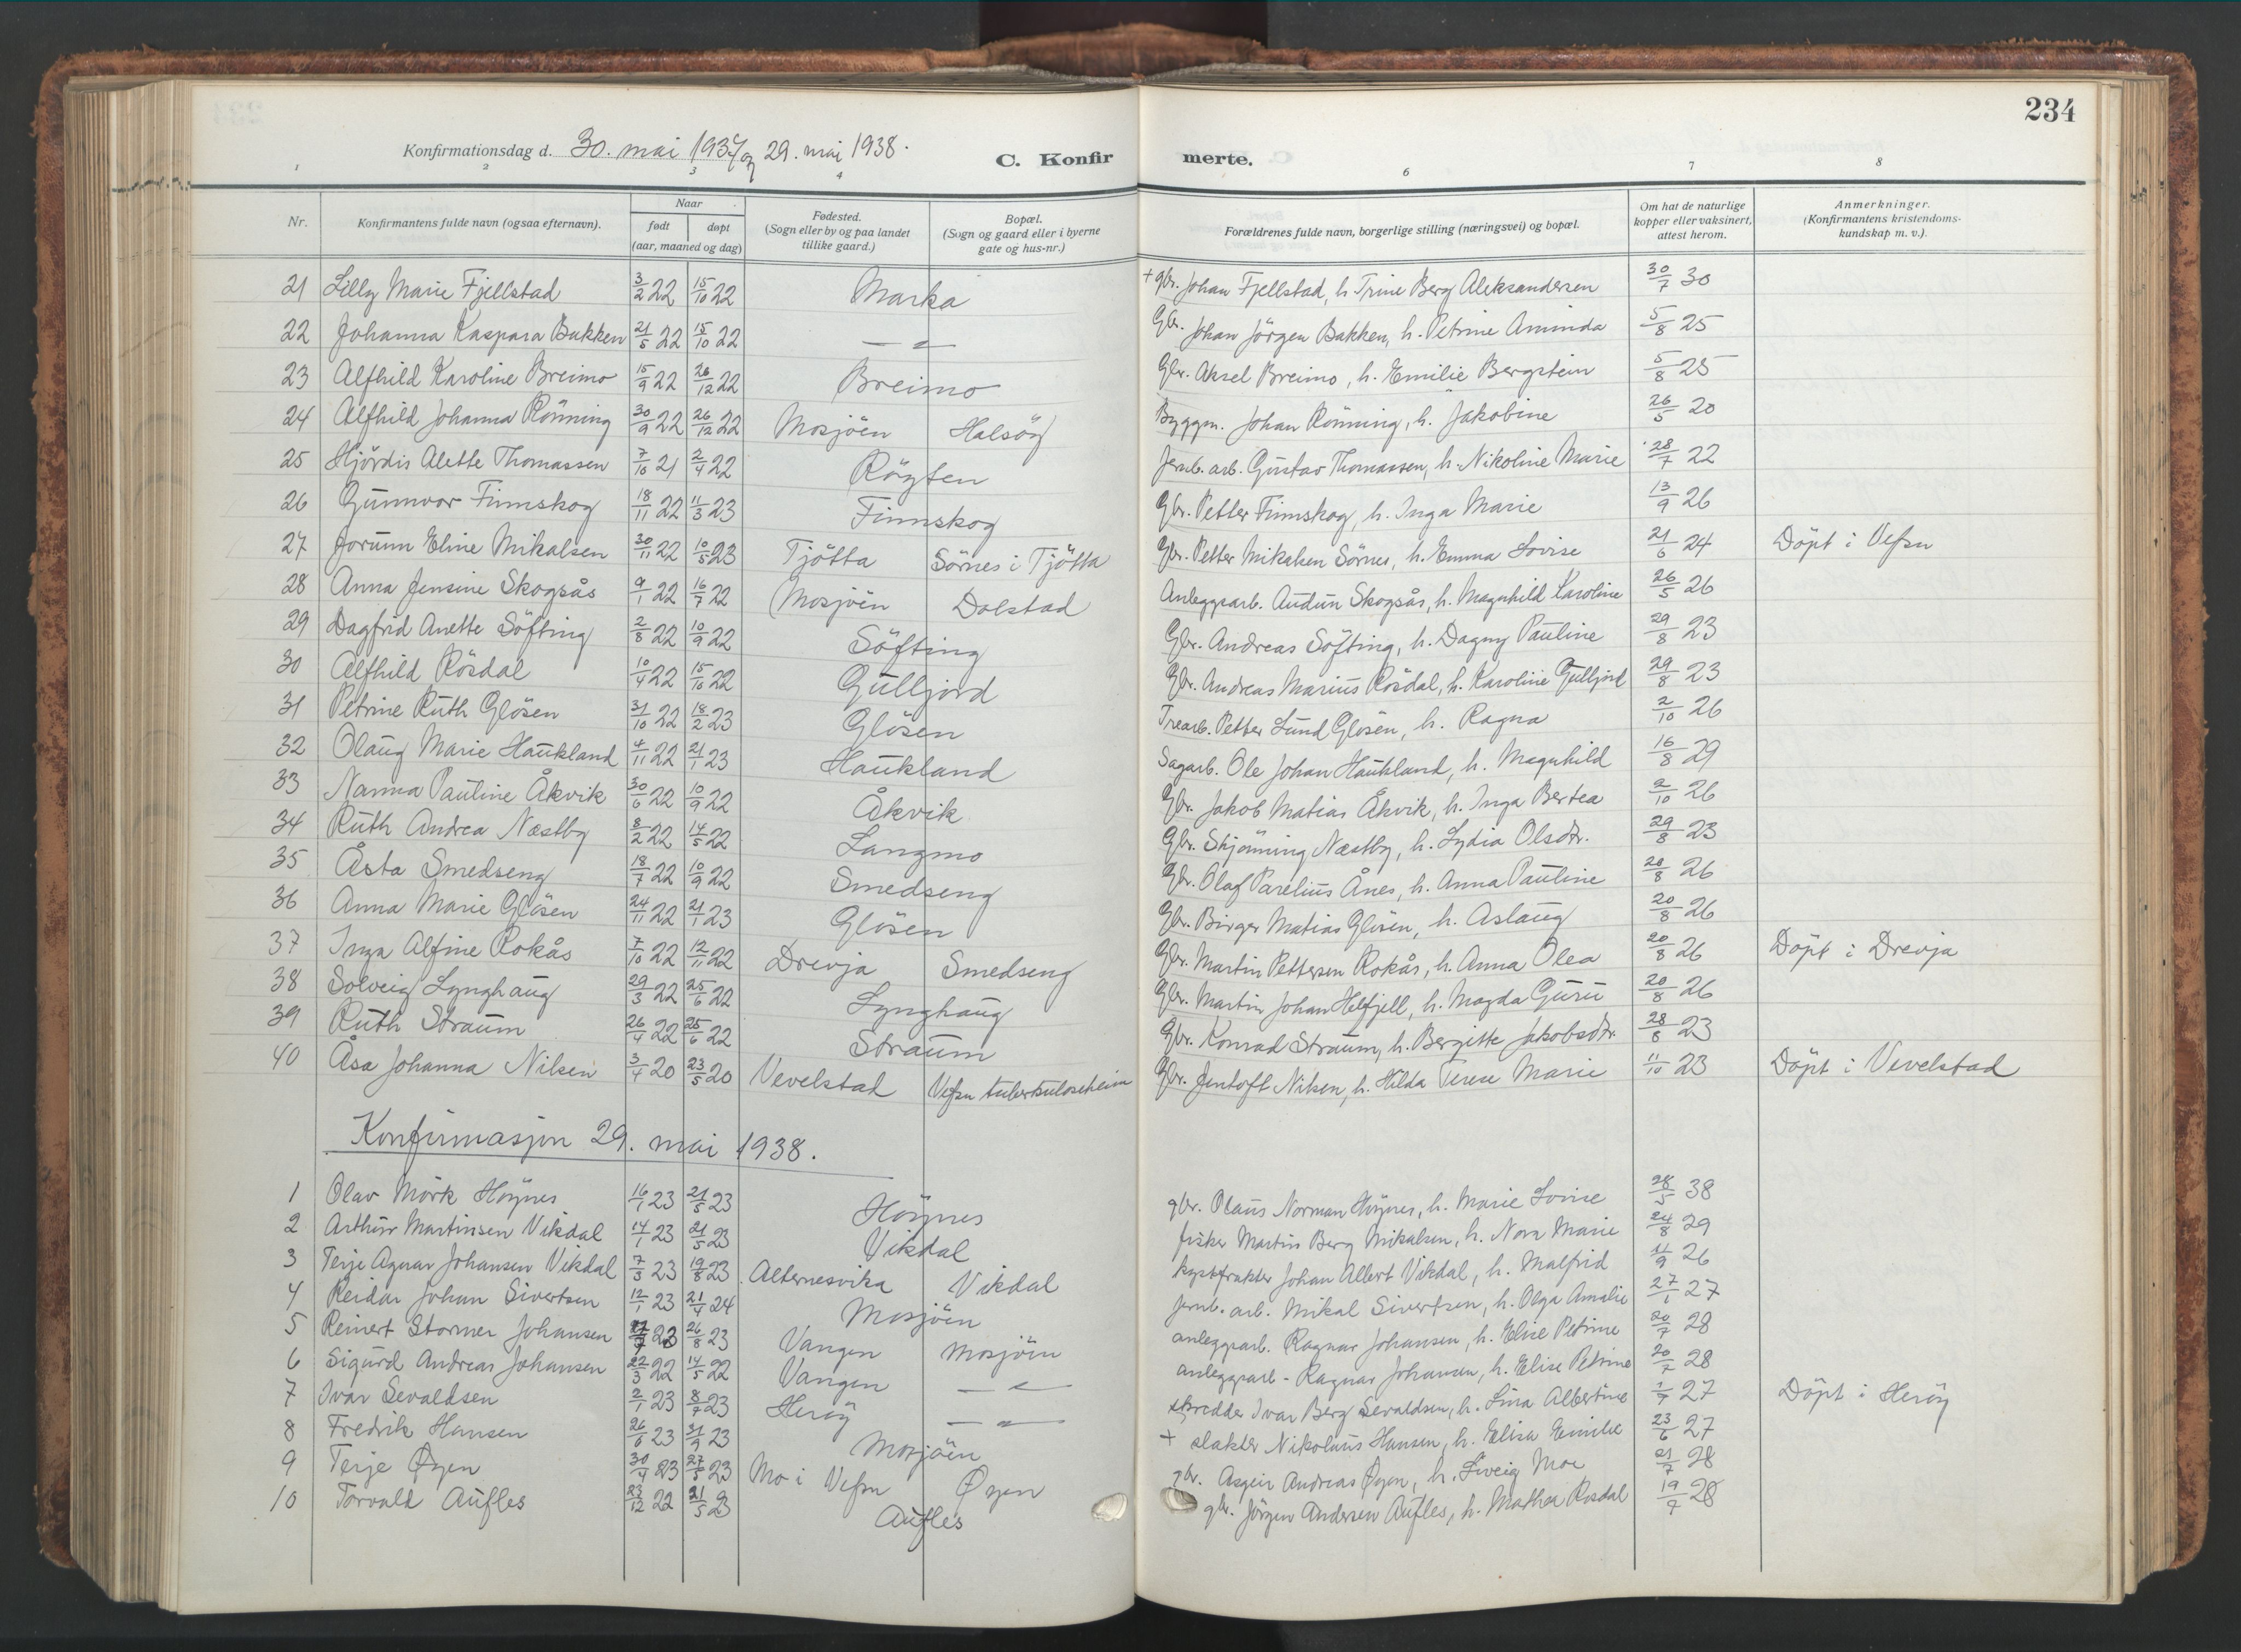 234
Konfirmationsdag d. 30. mai 1937 og 29. mai 1938.
C. Konfirmerte.
1 2 3 4 6 7 8
Nr. Konfirmantens fulde navn (ogsaa efternavn). Naar født døpt (aar, maaned og dag) Fødested. (Sogn eller by og paa landet tillike gaard.) Bopæl. (Sogn og gaard eller i byerne gate og hus-nr.) Forældrenes fulde navn, borgerlige stilling (næringsvei) og bopæl. Om hat de naturlige kopper eller vaksinert, attest herom. Anmerkninger. (Konfirmantens kristendoms-kundskap m. v.).
21 Lilly Marie Fjellstad 3/2 22 15/10 22 Marka + gbr. Johan Fjellstad, h. Trine Berg Aleksandersen 30/7 30
22 Johanna Kaspara Bakken 21/5 22 15/10 22 —"— Gbr. Johan Jörgen Bakken, h. Petrine Aminda 5/8 25
23 Alfhild Karoline Breimo 15/9 22 26/12 22 Breimo Gbr. Aksel Breimo, h. Emilie Bergstein 5/8 25
24 Alfhild Johanna Rönning 30/9 22 26/12 22 Mosjöen Halsöy Byggm. Johan Rönning, h. Jakobine 26/5 20
25 Hjördis Alette Thomassen 7/10 21 2/4 22 Röyten Jernb. arb. Gustav Thomassen, h. Nikoline Marie 28/7 22
26 Gunnvor Finnskog 18/11 22 11/3 23 Finnskog Gbr. Petter Finnskog, h. Inga Marie 13/9 26
27 Jorunn Eline Mikalsen 30/11 22 10/5 23 Tjötta Sörnes i Tjötta Gbr. Petter Mikalsen Sörnes, h. Emma Lovise 21/6 24 Döpt i Vefsn
28 Anna Jensine Skogsås 9/1 22 16/7 22 Mosjöen Dolstad Anleggsarb. Audun Skogsås, h. Magnhild Karoline 26/5 26
29 Dagfrid Anette Söfting 2/8 22 10/9 22 Söfting Gbr. Andreas Söfting, h. Dagny Pauline 29/8 23
30 Alfhild Rösdal 10/4 22 15/10 22 Gulljord Gbr. Andreas Marius Rösdal, h. Karoline Gulljord 29/8 23
31 Petrine Ruth Glösen 31/10 22 18/2 23 Glösen Trearb. Petter Lund Glösen, h. Ragna 2/10 26
32 Olaug Marie Haukland 4/11 22 21/1 23 Haukland Sagarb. Ole Johan Haukland, h. Magnhild 16/8 29
33 Nanna Pauline Åkvik 30/6 22 10/9 22 Åkvik Gbr. Jakob Matias Åkvik, h. Inga Bertea 2/10 26
34 Ruth Andrea Næstby 8/2 22 14/5 22 Langmo Gbr. Skjönning Næstby, h. Lydia Olsdtr. 29/8 23
35 Åsta Smedseng 18/7 22 10/9 22 Smedseng Gbr. Olaf Parelius Ånes, h. Anna Pauline 20/8 26
36 Anna Marie Glösen 24/11 22 21/1 23 Glösen Gbr. Birger Matias Glösen, h. Aslaug 20/8 26
37 Inga Alfine Rokås 7/10 22 12/11 22 Drevja Smedseng Gbr. Martin Pettersen Rokås, h. Anna Olea 20/8 26 Döpt i Drevja
38 Solveig Lynghaug 29/3 22 25/6 22 Lynghaug Gbr. Martin Johan Helfjell, h. Magda Guru 20/8 26
39 Ruth Straum 26/4 22 25/6 22 Straum Gbr. Konrad Straum, h. Bergitte Jakobsdtr. 28/8 23
40 Åsa Johanna Nilsen 3/4 20 23/5 20 Vevelstad Vefsn tuberkuloseheim Gbr. Jentoft Nilsen, h. Hilda Terese Marie 11/10 23 Döpt i Vevelstad
Konfirmasjon 29. mai 1938.
1 Olav Mörk Höynes 16/1 23 21/5 23 Höynes gbr. Olaus Norman Höynes, h. Marie Lovise 28/5 38
2 Arthur Martinsen Vikdal 14/1 23 21/5 23 Vikdal fisker Martin Berg Mikalsen, h. Nora Marie 24/8 29
3 Terje Agnar Johansen Vikdal 7/3 23 19/8 23 Alternesvika Vikdal kystfrakter Johan Albert Vikdal, h. Malfrid 11/9 26
4 Reidar Johan Sivertsen 12/1 23 21/4 24 Mosjöen Jernb. arb. Mikal Sivertsen, h. Olga Amalie 27/1 27
5 Reinert Stormer Johansen 23 26/8 23 Vangen Mosjöen anleggsarb. Ragnar Johansen, h. Elise Petrine 20/7 28
6 Sigurd Andreas Johansen 22/3 22 14/5 22 Vangen —"— anleggsarb - Ragnar Johansen, h. Elise Petrine 20/7 28
7 Ivar Sevaldsen 2/1 23 8/7 23 Heröy —"— skredder Ivar Berg Sevaldsen, h. Lina Albertine 1/7 27 Döpt i Heröy
8 Fredrik Hansen 26/6 23 31/9 23 Mosjöen + slakter Nikolaus Hansen, h. Elisa Emilie 23/6 27
9 Terje Øyen 30/4 23 27/5 23 Mo i Vefsn Øyen gbr. Asgeir Andreas Øyen, h. Moe 21/7 28
10 Torvald Aufles 23/12 22 21/5 23 Aufles gbr. Jörgen Andersen Aufles, h. Mathea Rosdal 19/7 28